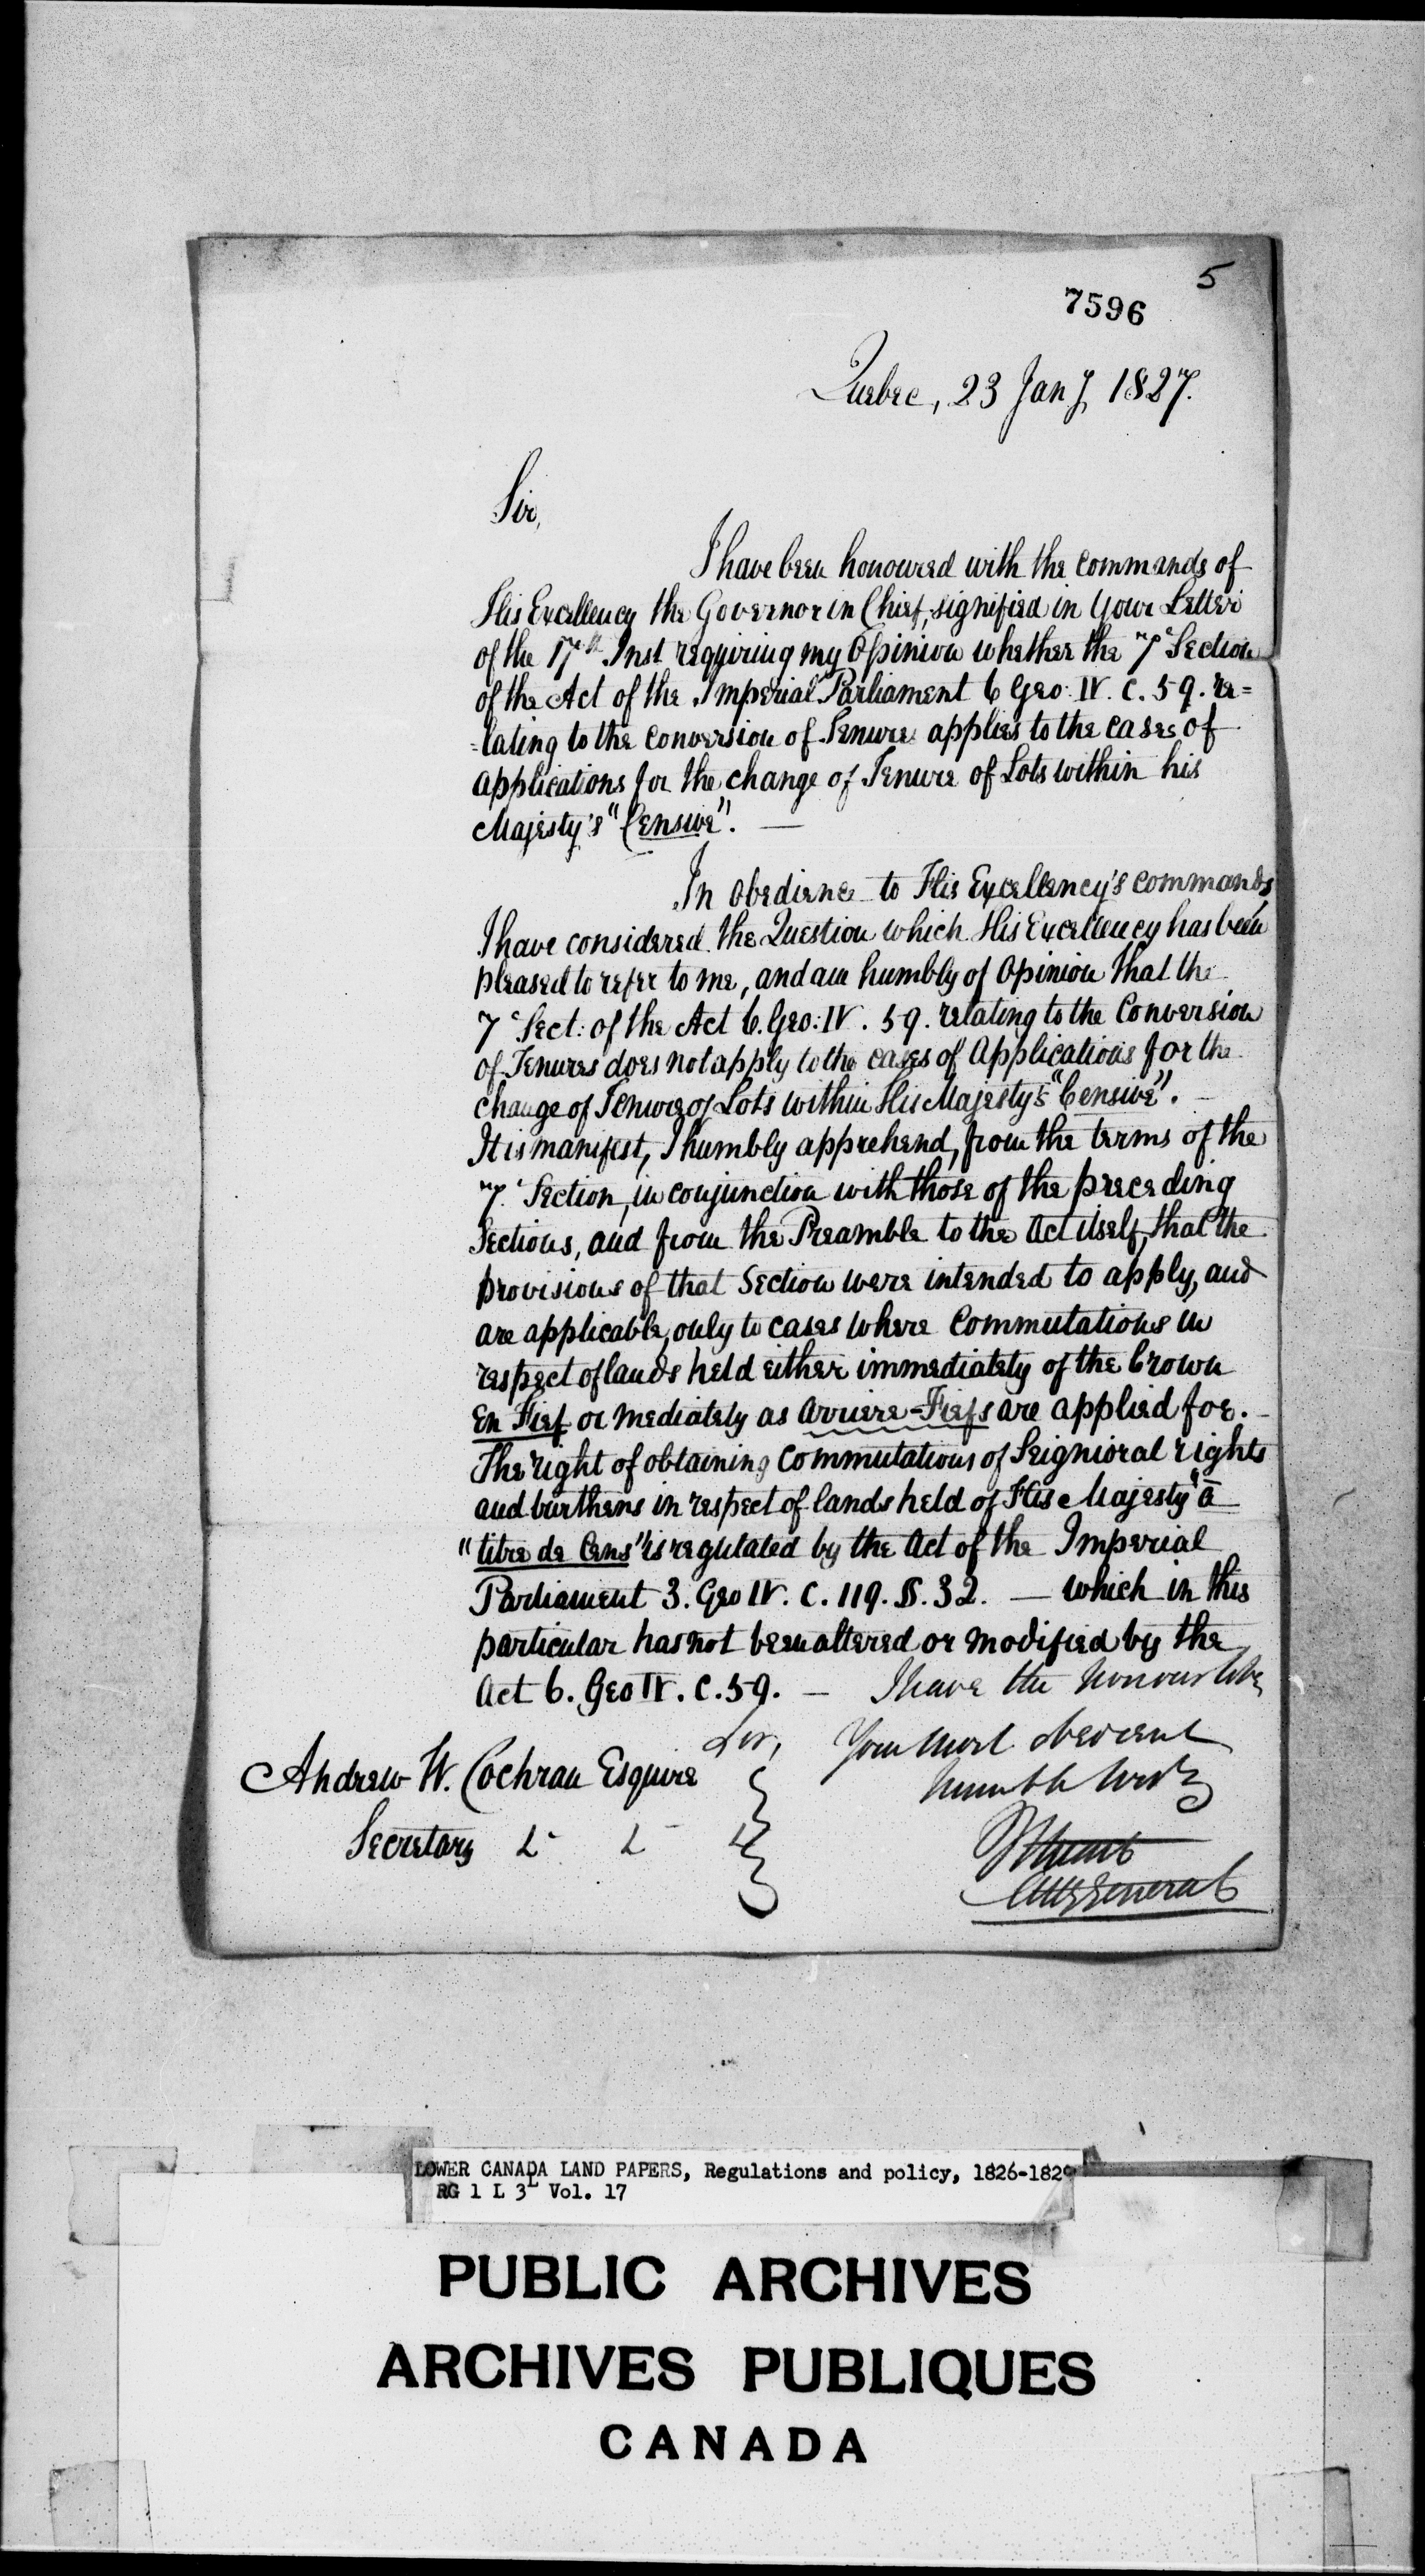 5
7596
Quebec, 23 Jany 1827.
Sir,
I have been honoured with the commands of
His Excellency the Governor in Chief, signified in your Letter
of the 17th Inst requiring my Opinion whether the 7 Section
of the Act of the Imperial Parliament 6 Geo: IV. C. 59. re=
=lating to the conversion of Tenures applies to the cases of
applications for the change of Tenure of Lots within his
Majesty's "Censive". —
In obedience to His Excellency's commands
I have considered the Question which His Excellency has been
pleased to refer to me, and am humbly of Opinion that the
7 Sect: of the Act 6. Geo: IV. 59. relating to the Conversion
of Tenures does not apply to the cases of Applications for the
change of Tenure of Lots within His Majesty's "Censive". —
It is manifest, I humbly apprehend, from the terms of the
7. Section, in conjunction with those of the preceding
Sections, and from the Preamble to the Act itself, that the
provisions of that Section were intended to apply, and
are applicable, only to cases where Commutations in
respect of lands held either immediately of the Crown
En Fief or mediately as Arriere-Fiefs are applied for. —
The right of obtaining Commutations of Seignioral rights
and burthens in respect of lands held of His Majesty "à
"titre de Cens" is regulated by the Act of the Imperial
Parliament 3. Geo IV. C. 119. S. 32. — which in this
particular has not been altered or modified by the
Act 6. Geo IV. C. 59. — I have the honour to be
Sir, Your most obedient
Andrew W. Cochran Esquire
humble Servt
Secretary
J Stuart
Atty General
LOWER CANADA LAND PAPERS, Regulations and policy, 1826-1829
RG 1 L 3L Vol. 17
PUBLIC ARCHIVES
ARCHIVES PUBLIQUES
CANADA